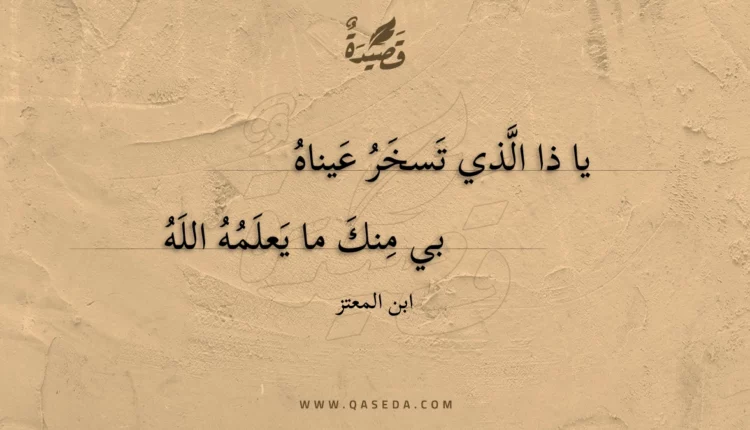 قَصِيْدَةٌ
يا ذا الَّذي تَسخَرُ عَيناهُ
بي مِنكَ ما يَعلَمُهُ اللَهُ
ابن المعتز
WWW.QASEDA.COM